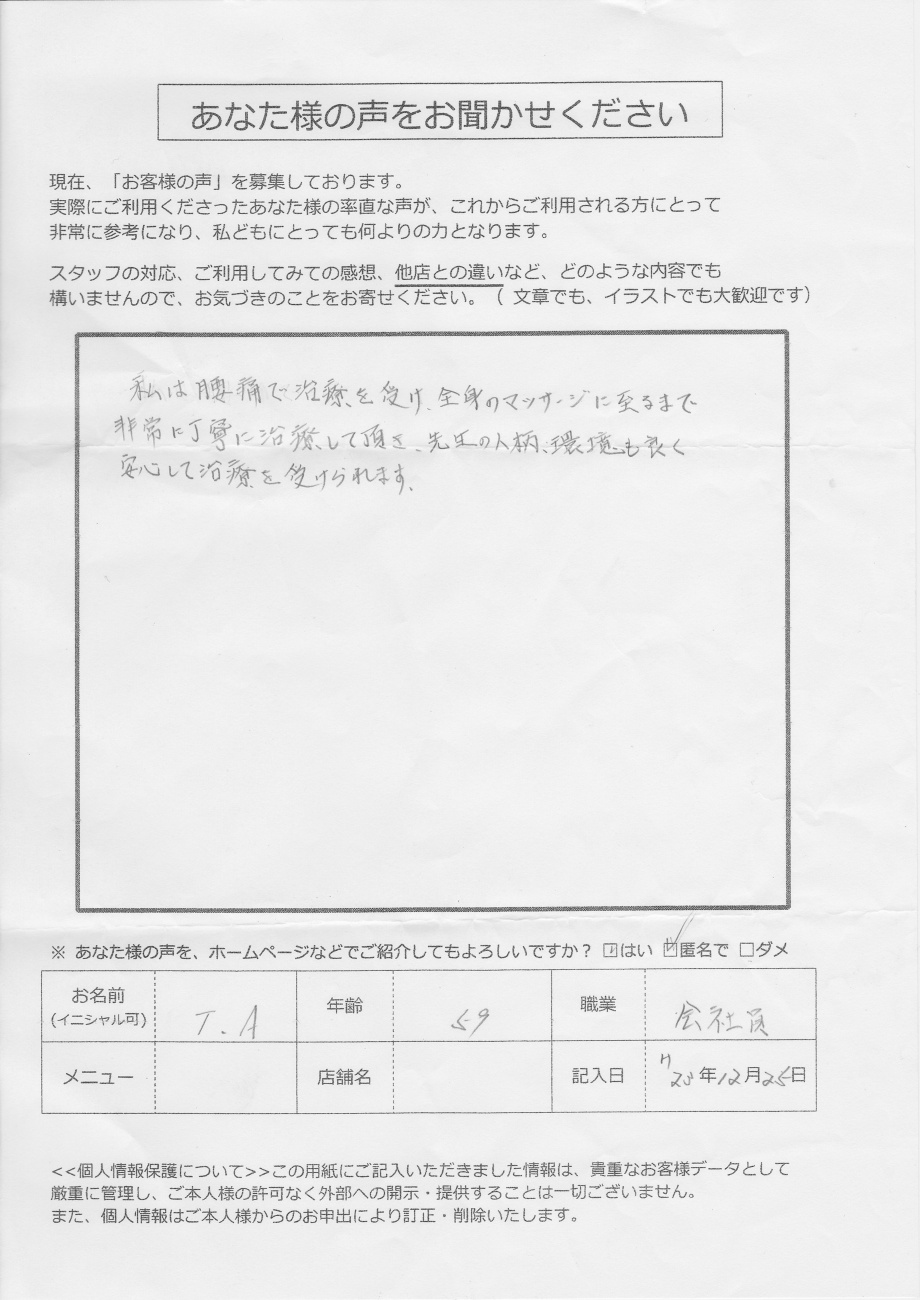 あなた様の声をお聞かせください
現在、「お客様の声」を募集しております。
実際にご利用くださったあなた様の率直な声が、これからご利用される方にとって
非常に参考になり、私どもにとっても何よりの力となります。
スタッフの対応、ご利用してみての感想、他店との違いなど、どのような内容でも
構いませんので、お気づきのことをお寄せください。（ 文章でも、イラストでも大歓迎です）
私は腰痛で治療を受け、全身のマッサージに至るまで
非常に丁寧に治療して頂き、先生の人柄、環境も良く
安心して治療を受けられます。
※ あなた様の声を、ホームページなどでご紹介してもよろしいですか？ □はい ☑匿名で □ダメ
お名前 (イニシャル可) T.A 年齢 59 職業 会社員
メニュー 店舗名 記入日 年12月25日
<<個人情報保護について>>この用紙にご記入いただきました情報は、貴重なお客様データとして
厳重に管理し、ご本人様の許可なく外部への開示・提供することは一切ございません。
また、個人情報はご本人様からのお申出により訂正・削除いたします。